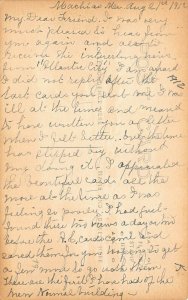 Machias Me. Aug 21st 191
My Dear Friend. I was very
much pleased to hear from
you again and
receive the interesting
"Atlantic City" I am
I did not reply after the
last cards you sent but I was
ill at the time and meant
to have written you
when I felt better. But the time
has slipped by without
my doing it. I appreciated
the beautiful cards all the
more at the time as I was
feeling so poorly. I had just
found these two views a day or two
before the cards came and
saved them for you hoping to get
a few more to go with them
These are the first I have had of the
New Normal building